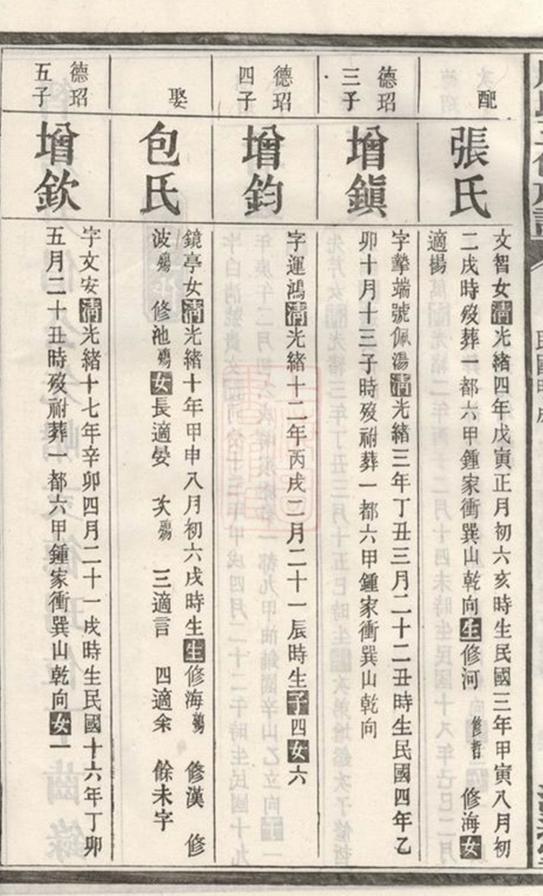 配
張氏
文智女清光緒四年戊寅正月初六亥時生民國三年甲寅八月初
二戌時歿葬一都六甲鍾家衝巽山乾向生修河 修哲 修海女
適楊
德玿
三子
增鎭
字擊端號佩湯清光緒三年丁丑三月二十二丑時生民國四年乙
卯十月十三子時歿祔葬一都六甲鍾家衝巽山乾向
德玿
四子
增鈞
字運鴻清光緒十二年丙戌三月二十一辰時生子四女六
娶
包氏
鏡亭女清光緒十年甲申八月初六戌時生生修海殤 修漢 修
波殤 修池殤女長適晏 次殤 三適言 四適余 餘未字
德玿
五子
增欽
字文安清光緒十七年辛卯四月二十一戌時生民國十六年丁卯
五月二十丑時歿祔葬一都六甲鍾家衝巽山乾向女一